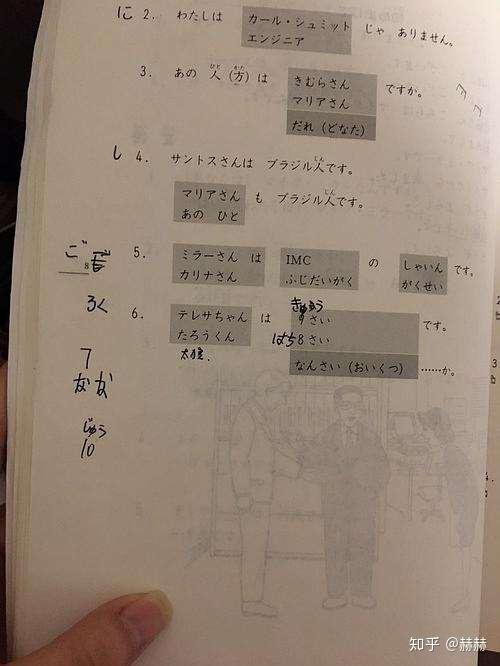 に 2. わたしは カール・シュミット じゃ ありません。
エンジニア
3. あの 人（方）は きむらさん ですか。
ひと かた
マリアさん
だれ（どなた）
し 4. サントスさんは ブラジル人です。
じん
マリアさん も ブラジル人です。
じん
あの ひと
5. ミラーさん は IMC の しゃいん です。
カリナさん ふじだいがく がくせい
ご
8
ろく
7
なな
じゅう
10
6. テレサちゃん は 9さい です。
きゅう
たろうくん はち8さい
太郎.
なんさい（おいくつ）……か。
知乎 @赫赫